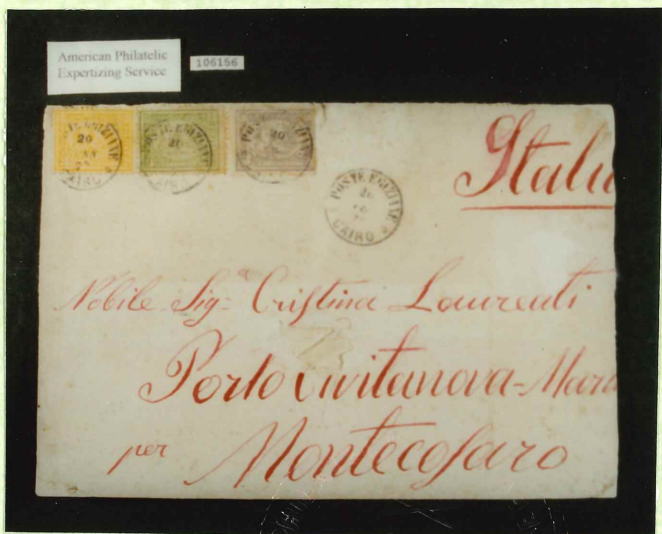 American Philatelic
Expertizing Service
106156
20
POSTE EGIZIANE
20
CAIRO
20
POSTE EGIZIANE
CAIRO
Nobile Sig.ª Cristina Laurenti
Porto Civitanova-Mar
per Montecosaro